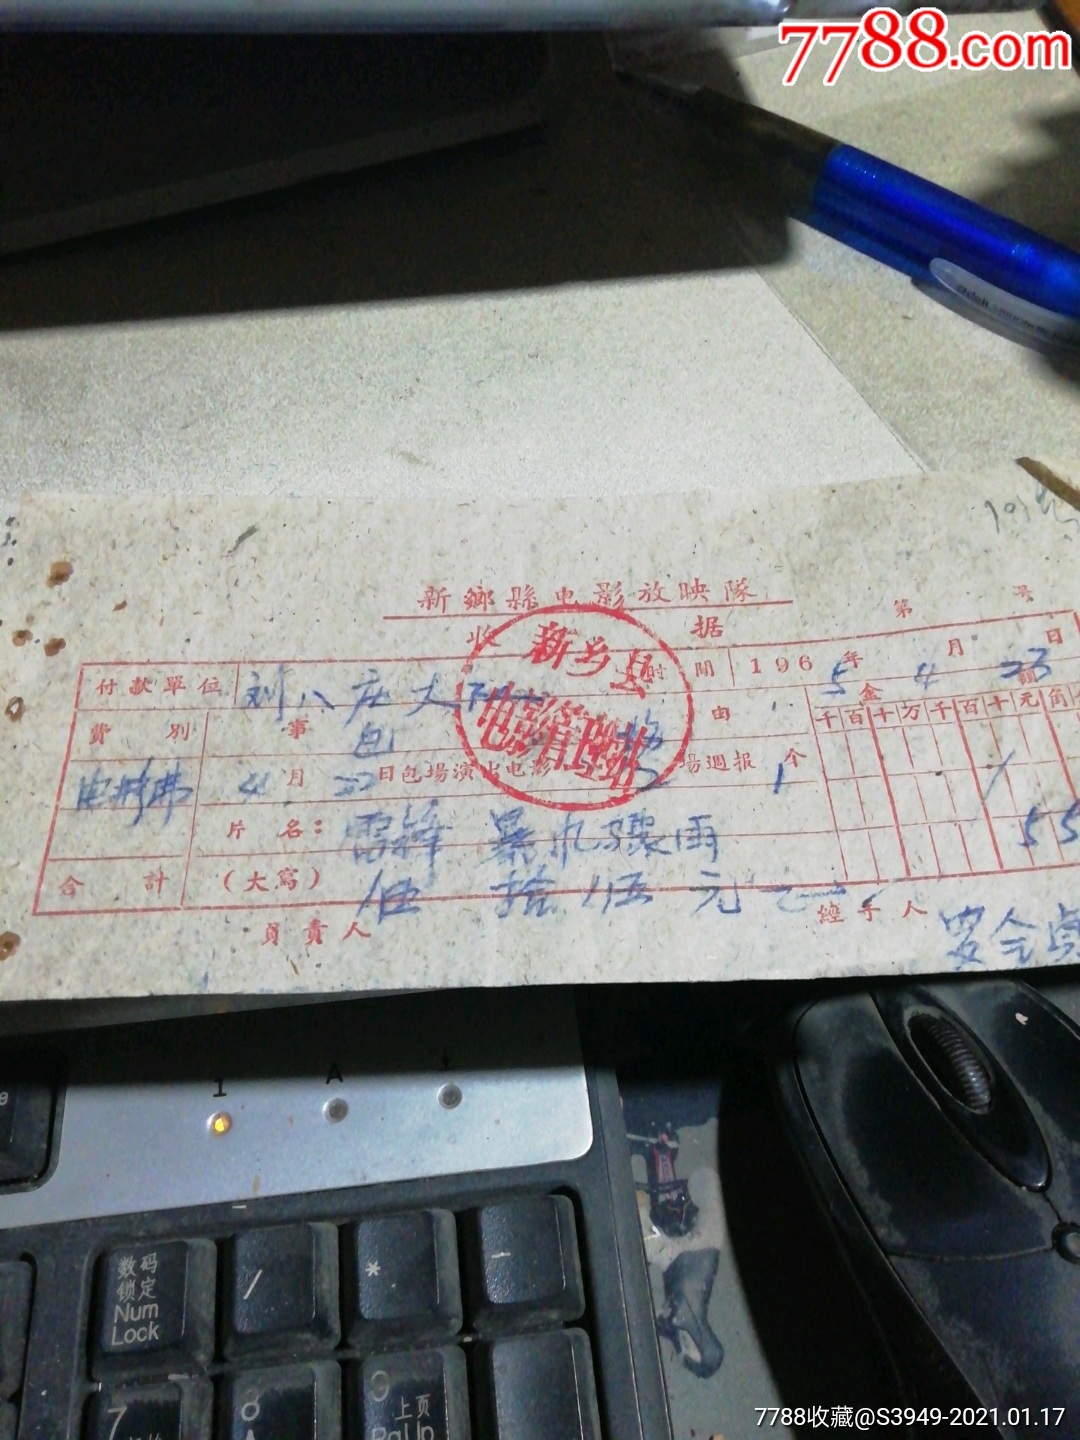 7788.com
新鄉縣电影放映隊
第 号
收 据
付款單位 刘八庄大队 时間 1965年4月23日
費別 事 由 金額
包 场
千百十万千百十元角
电影费 4月22日包場演出电影 場週報1个
片名: 雷锋 暴风骤雨
55
合計 (大寫) 伍拾伍元
負責人 經手人
新乡县
I A
数码
锁定
Num
Lock
/
*
-
7
8
9
上页
PgUp
7788收藏@S3949-2021.01.17